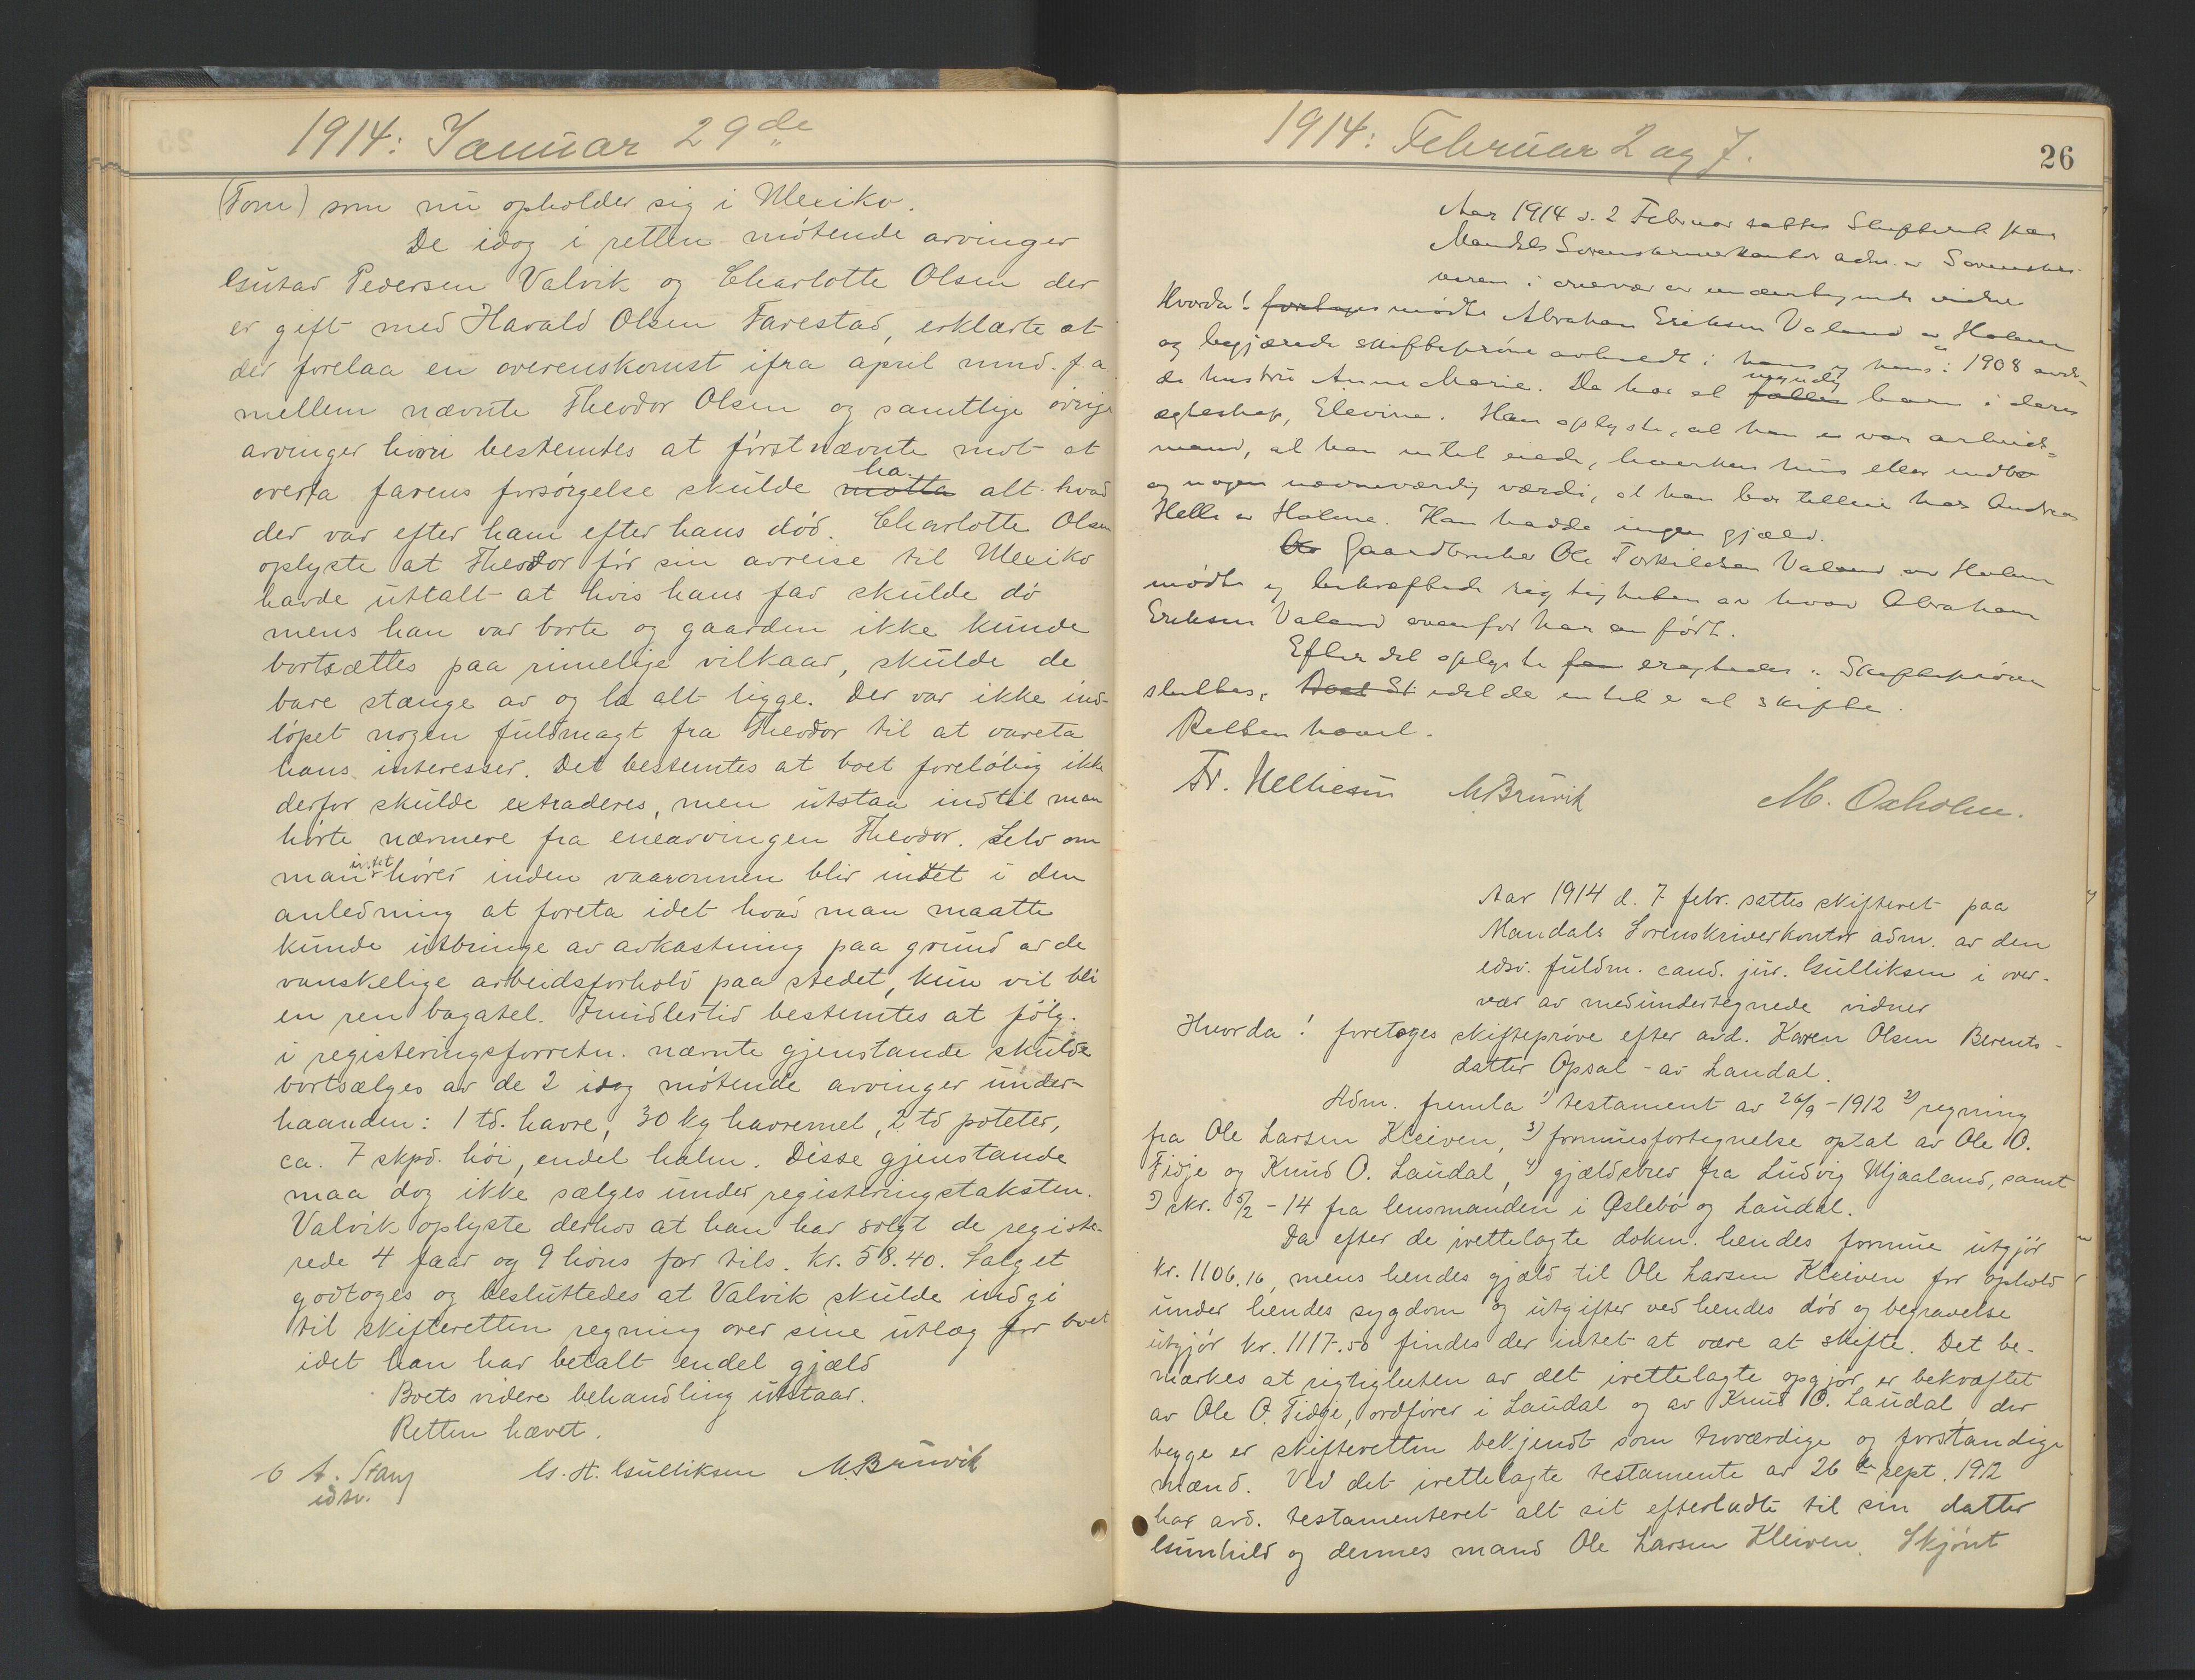 1914: Januar 29de
(Tom) som nu opholder sig i Mexiko.
De idag i retten møtende arvinger
Gustav Pedersen Valvik og Charlotte Olsen der
er gift med Harald Olsen Farestad, erklærte at
der forelaa en overenskomst ifra april mnd. f.a.
mellem nævnte Theodor Olsen og samtlige øvrige
arvinger hvori bestemtes at førstnævnte mot at
overta farens forsørgelse skulde motta ha alt hvad
der var efter ham efter hans død. Charlotte Olsen
oplyste at Theodor før sin avreise til Mexiko
havde uttalt at hvis hans far skulde dø
mens han var borte og gaarden ikke kunde
bortsættes paa rimelige vilkaar, skulde de
bare stænge av og la alt ligge. Der var ikke ind-
løpet nogen fuldmagt fra Theodor til at vareta
hans interesser. Det bestemtes at boet foreløbig ikke
derfor skulde extraderes, men utstaa indtil man
hørte nærmere fra enearvingen Theodor. Selv om
man intet hører inden vaaronnen blir intet i den
anledning at foreta idet hvad man maatte
kunde utbringe av avkastning paa grund av de
vanskelige arbeidsforhold paa stedet, kun vil bli
en ren bagatel. Imidlertid bestemtes at følg.
i registeringsforretn. nævnte gjenstande skulde
bortsælges av de 2 idag møtende arvinger under-
haanden: 1 td. havre, 30 kg havremel, 2 td poteter,
ca. 7 skpd. høi, endel halm. Disse gjenstande
maa dog ikke sælges under registeringstaksten.
Valvik oplyste derhos at han har solgt de registe-
rede 4 faar og 9 høns for tils. kr. 58.40. Salget
godtoges og besluttedes at Valvik skulde indgi
til skifteretten regning over sine utlæg for boet
idet han har betalt endel gjæld
Boets videre behandling utstaar.
Retten hævet.
A. Stang G. H. Gulliksen M. Brunvik
edsv.
1914: Februar 2 og 7.
26
Aar 1914 d. 2 Februar sattes Skifteret paa
Mandals Sorenskriverkontor adm. av Sorenskri-
veren i overvær av undertegnede vidner
Hvorda! foretoges mødte Abraham Eriksen Valand av Holme
og begjærede skifteprøve avholdt i hans og hans i 1908 avdø-
de hustru Anne Marie. De har et fælles myndig barn i deres
egteskap, Elevine. Han oplyste, at han e var arbeids-
mand, at han intet eiede, hverken hus eller indbo
og nogen nævneværdig værdi, at han bor tilleie hos Andreas
Helle av Holme. Han hadde ingen gjæld.
Gaardbruker Ole Torkildsen Valand av Holme
mødte og bekræftede rigtigheten av hvad Abraham
Eriksen Valand ovenfor har anført.
Efter det oplyste eragtedes: Skifteprøven
sluttes, idet der intet er at skifte.
Retten hævet.
Fr. Mellesen M. Brunvik M. Oxholm.
Aar 1914 d. 7 febr. sattes skifteret paa
Mandals Sorenskriverkontor adm. av den
edsv. fuldm. cand. jur. Gulliksen i over-
vær av medundertegnede vidner
Hvorda! foretoges skifteprøve efter avd. Karen Olsen Berents-
datter Opsal - av Laudal.
Adm. fremla 1) testament av 26/9-1912 2) regning
fra Ole Larsen Kleiven, 3) formuesfortegnelse optat av Ole O.
Fidje og Knud O. Laudal, 4) gjældsbrev fra Ludvig Mjaaland, samt
5) skr. 5/2-14 fra lensmanden i Øslebø og Laudal.
Da efter de irettelagte dokm. hendes formue utgjør
kr. 1106.16, mens hendes gjæld til Ole Larsen Kleiven for ophold
under hendes sygdom og utgifter ved hendes død og begravelse
utgjør kr. 1117.50 findes der intet at være at skifte. Det be-
mærkes at rigtigheten av det irettelagte opgjør er bekræftet
av Ole O. Fidje, ordfører i Laudal og av Knud O. Laudal, der
begge er skifteretten bekjendt som troværdige og forstandige
mænd. Ved det irettelagte testamente av 26de sept. 1912
har avd. testamenteret alt sit efterladte til sin datter
Gunhild og dennes mand Ole Larsen Kleiven. Skjønt